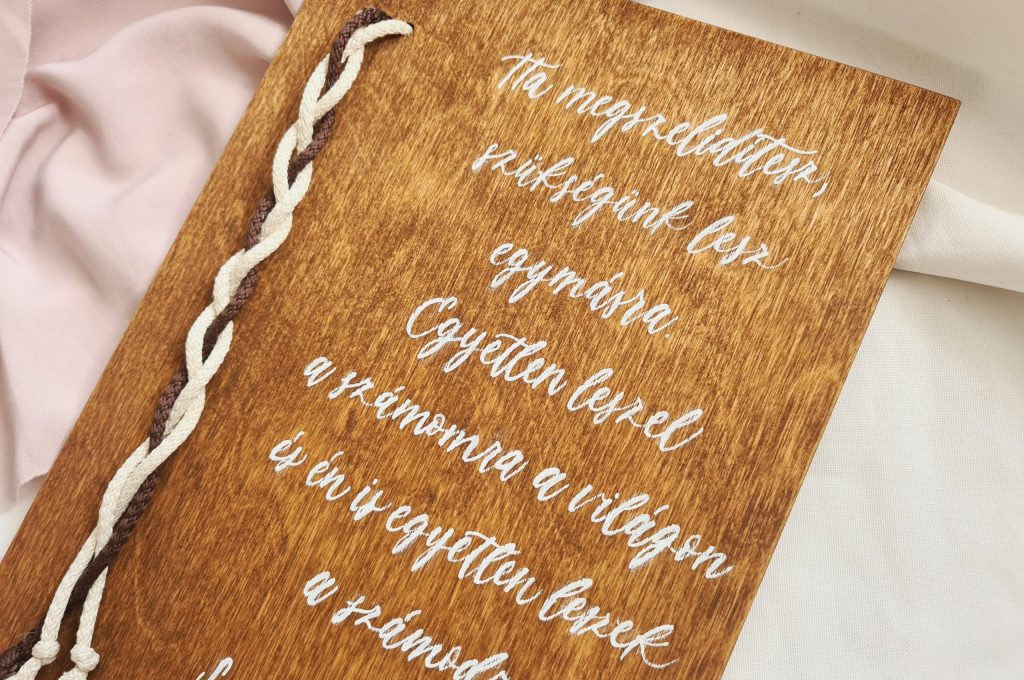 Ha megszelidítesz,
szükségünk lesz
egymásra.
Egyetlen leszel
a számomra a világon
és én is egyetlen leszek
a